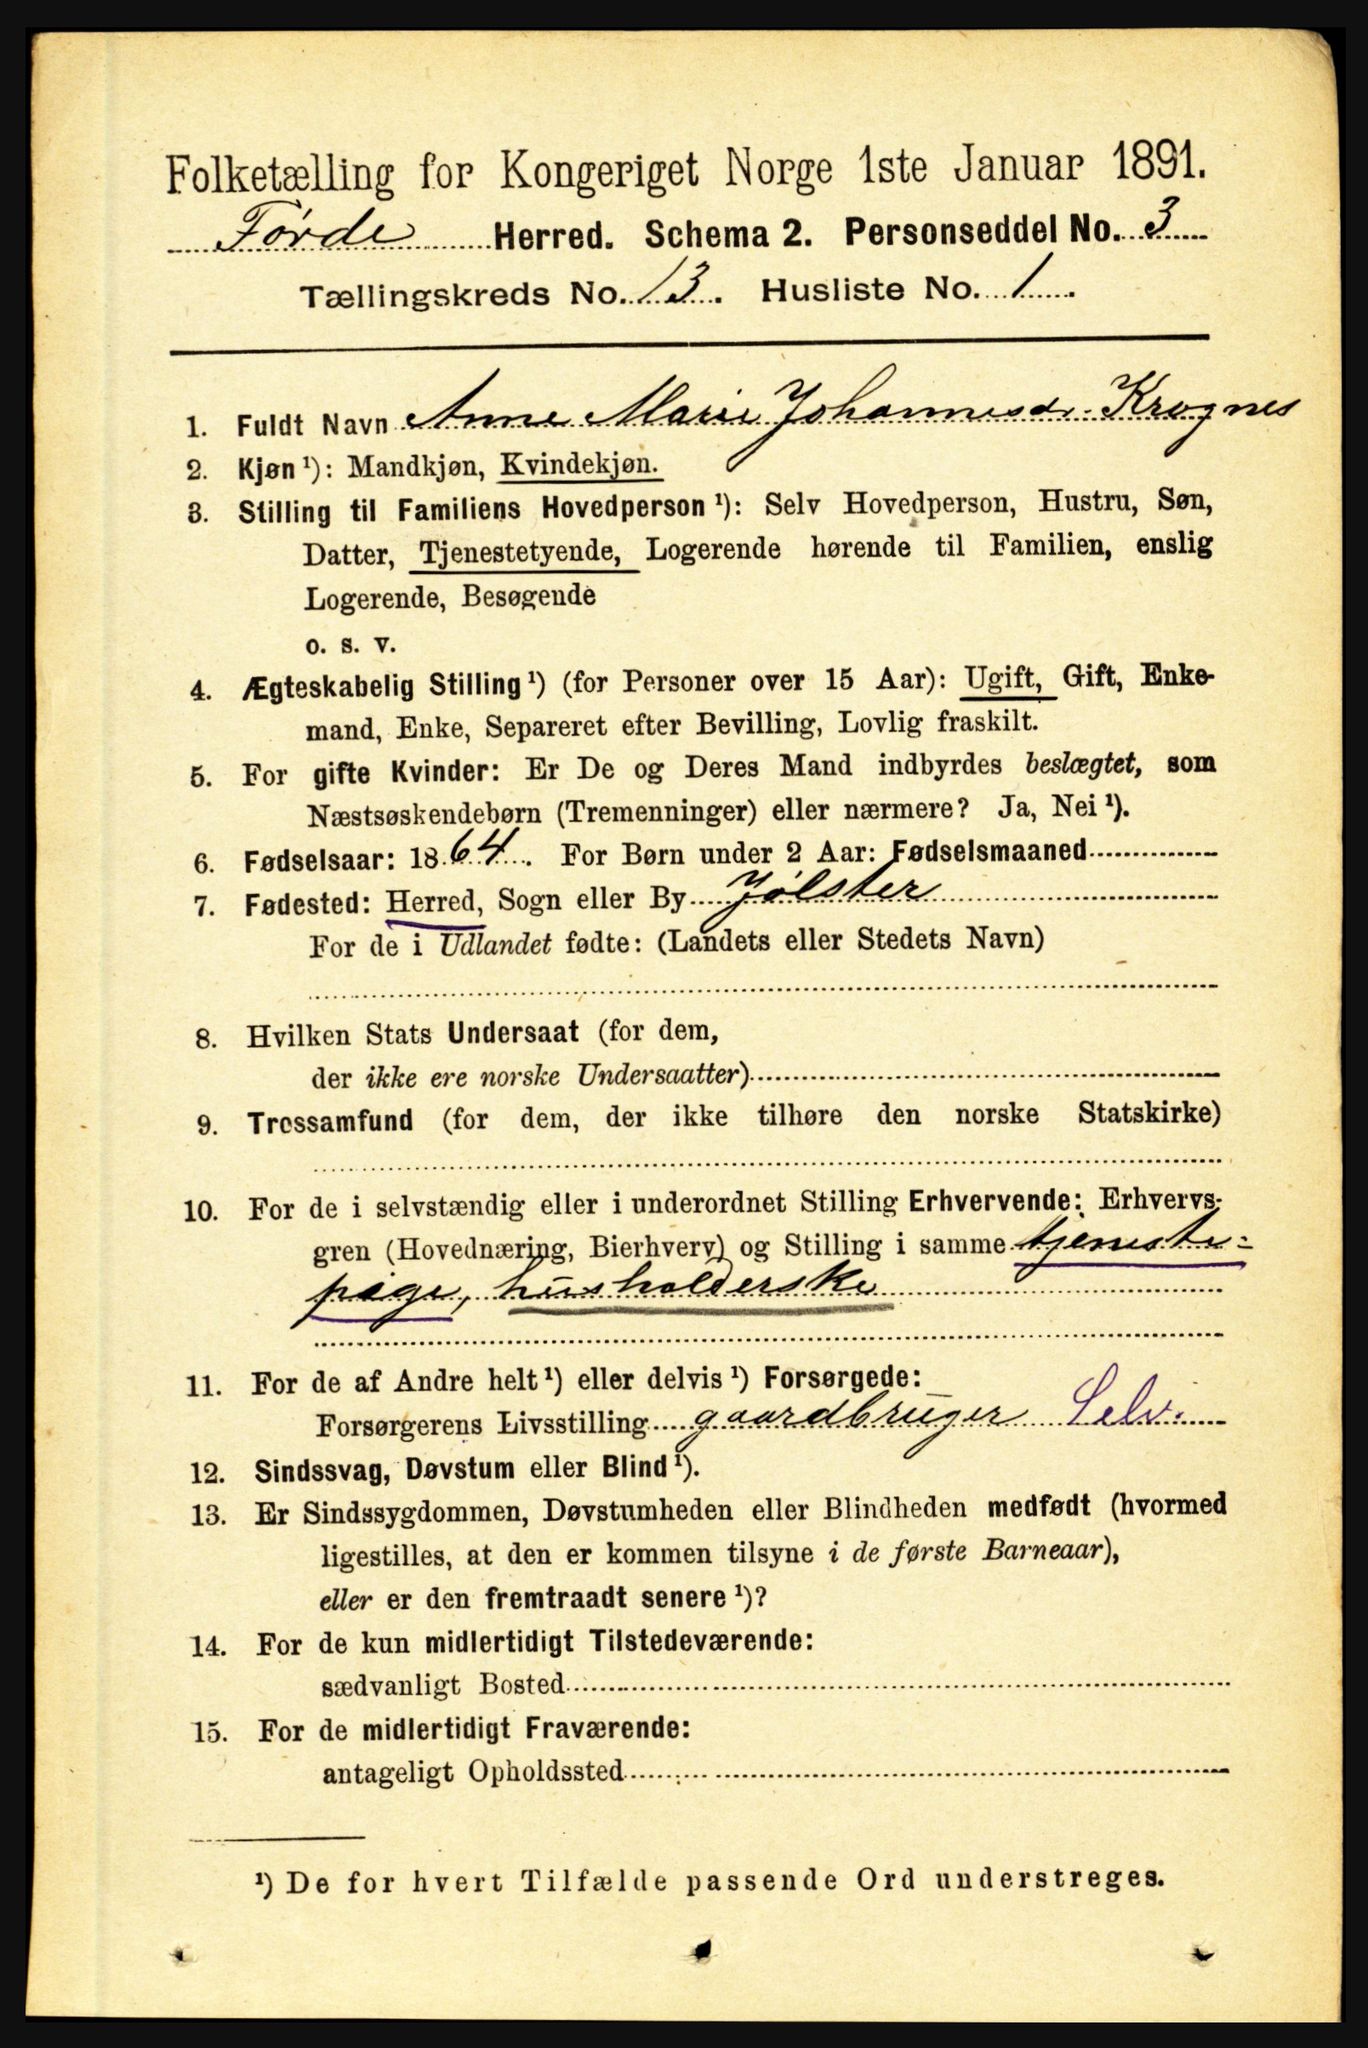 Folketælling for Kongeriget Norge 1ste Januar 1891.
Førde Herred. Schema 2. Personseddel No. 3
Tællingskreds No. 13. Husliste No. 1
1. Fuldt Navn Anne Marie Johannesdr Krognes
2. Kjøn ¹): Mandkjøn, Kvindekjøn.
3. Stilling til Familiens Hovedperson ¹): Selv Hovedperson, Hustru, Søn,
Datter, Tjenestetyende, Logerende hørende til Familien, enslig
Logerende, Besøgende
o. s. v.
4. Ægteskabelig Stilling ¹) (for Personer over 15 Aar): Ugift, Gift, Enke-
mand, Enke, Separeret efter Bevilling, Lovlig fraskilt.
5. For gifte Kvinder: Er De og Deres Mand indbyrdes beslægtet, som
Næstsøskendebørn (Tremenninger) eller nærmere? Ja, Nei ¹).
6. Fødselsaar: 1864. For Børn under 2 Aar: Fødselsmaaned
7. Fødested: Herred, Sogn eller By Jølster
For de i Udlandet fødte: (Landets eller Stedets Navn)
8. Hvilken Stats Undersaat (for dem,
der ikke ere norske Undersaatter)
9. Trossamfund (for dem, der ikke tilhøre den norske Statskirke)
10. For de i selvstændig eller i underordnet Stilling Erhvervende: Erhvervs-
gren (Hovednæring, Bierhverv) og Stilling i samme tjeneste-
pige, husholderske
11. For de af Andre helt ¹) eller delvis ¹) Forsørgede:
Forsørgerens Livsstilling gaardbruger Selv.
12. Sindssvag, Døvstum eller Blind ¹).
13. Er Sindssygdommen, Døvstumheden eller Blindheden medfødt (hvormed
ligestilles, at den er kommen tilsyne i de første Barneaar),
eller er den fremtraadt senere ¹)?
14. For de kun midlertidigt Tilstedeværende:
sædvanligt Bosted
15. For de midlertidigt Fraværende:
antageligt Opholdssted
¹) De for hvert Tilfælde passende Ord understreges.